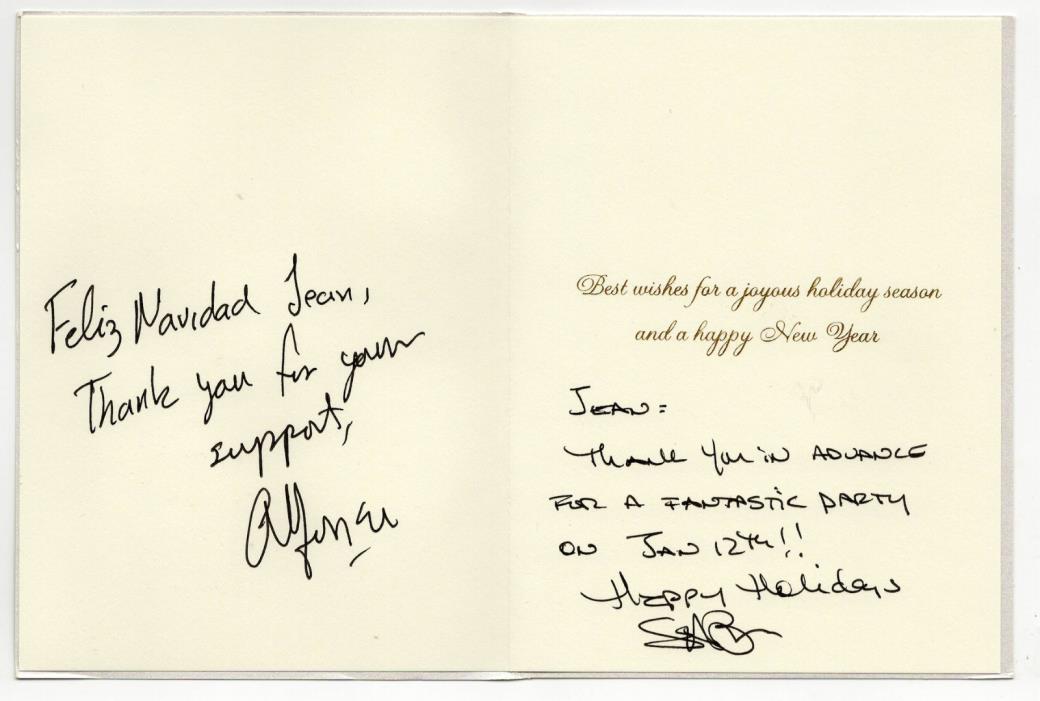 Feliz Navidad Jean,
Thank you for your
support,
Alfonso
Best wishes for a joyous holiday season
and a happy New Year
JEAN:
THANK YOU IN ADVANCE
FOR A FANTASTIC PARTY
ON JAN 12TH!!
HAPPY HOLIDAYS